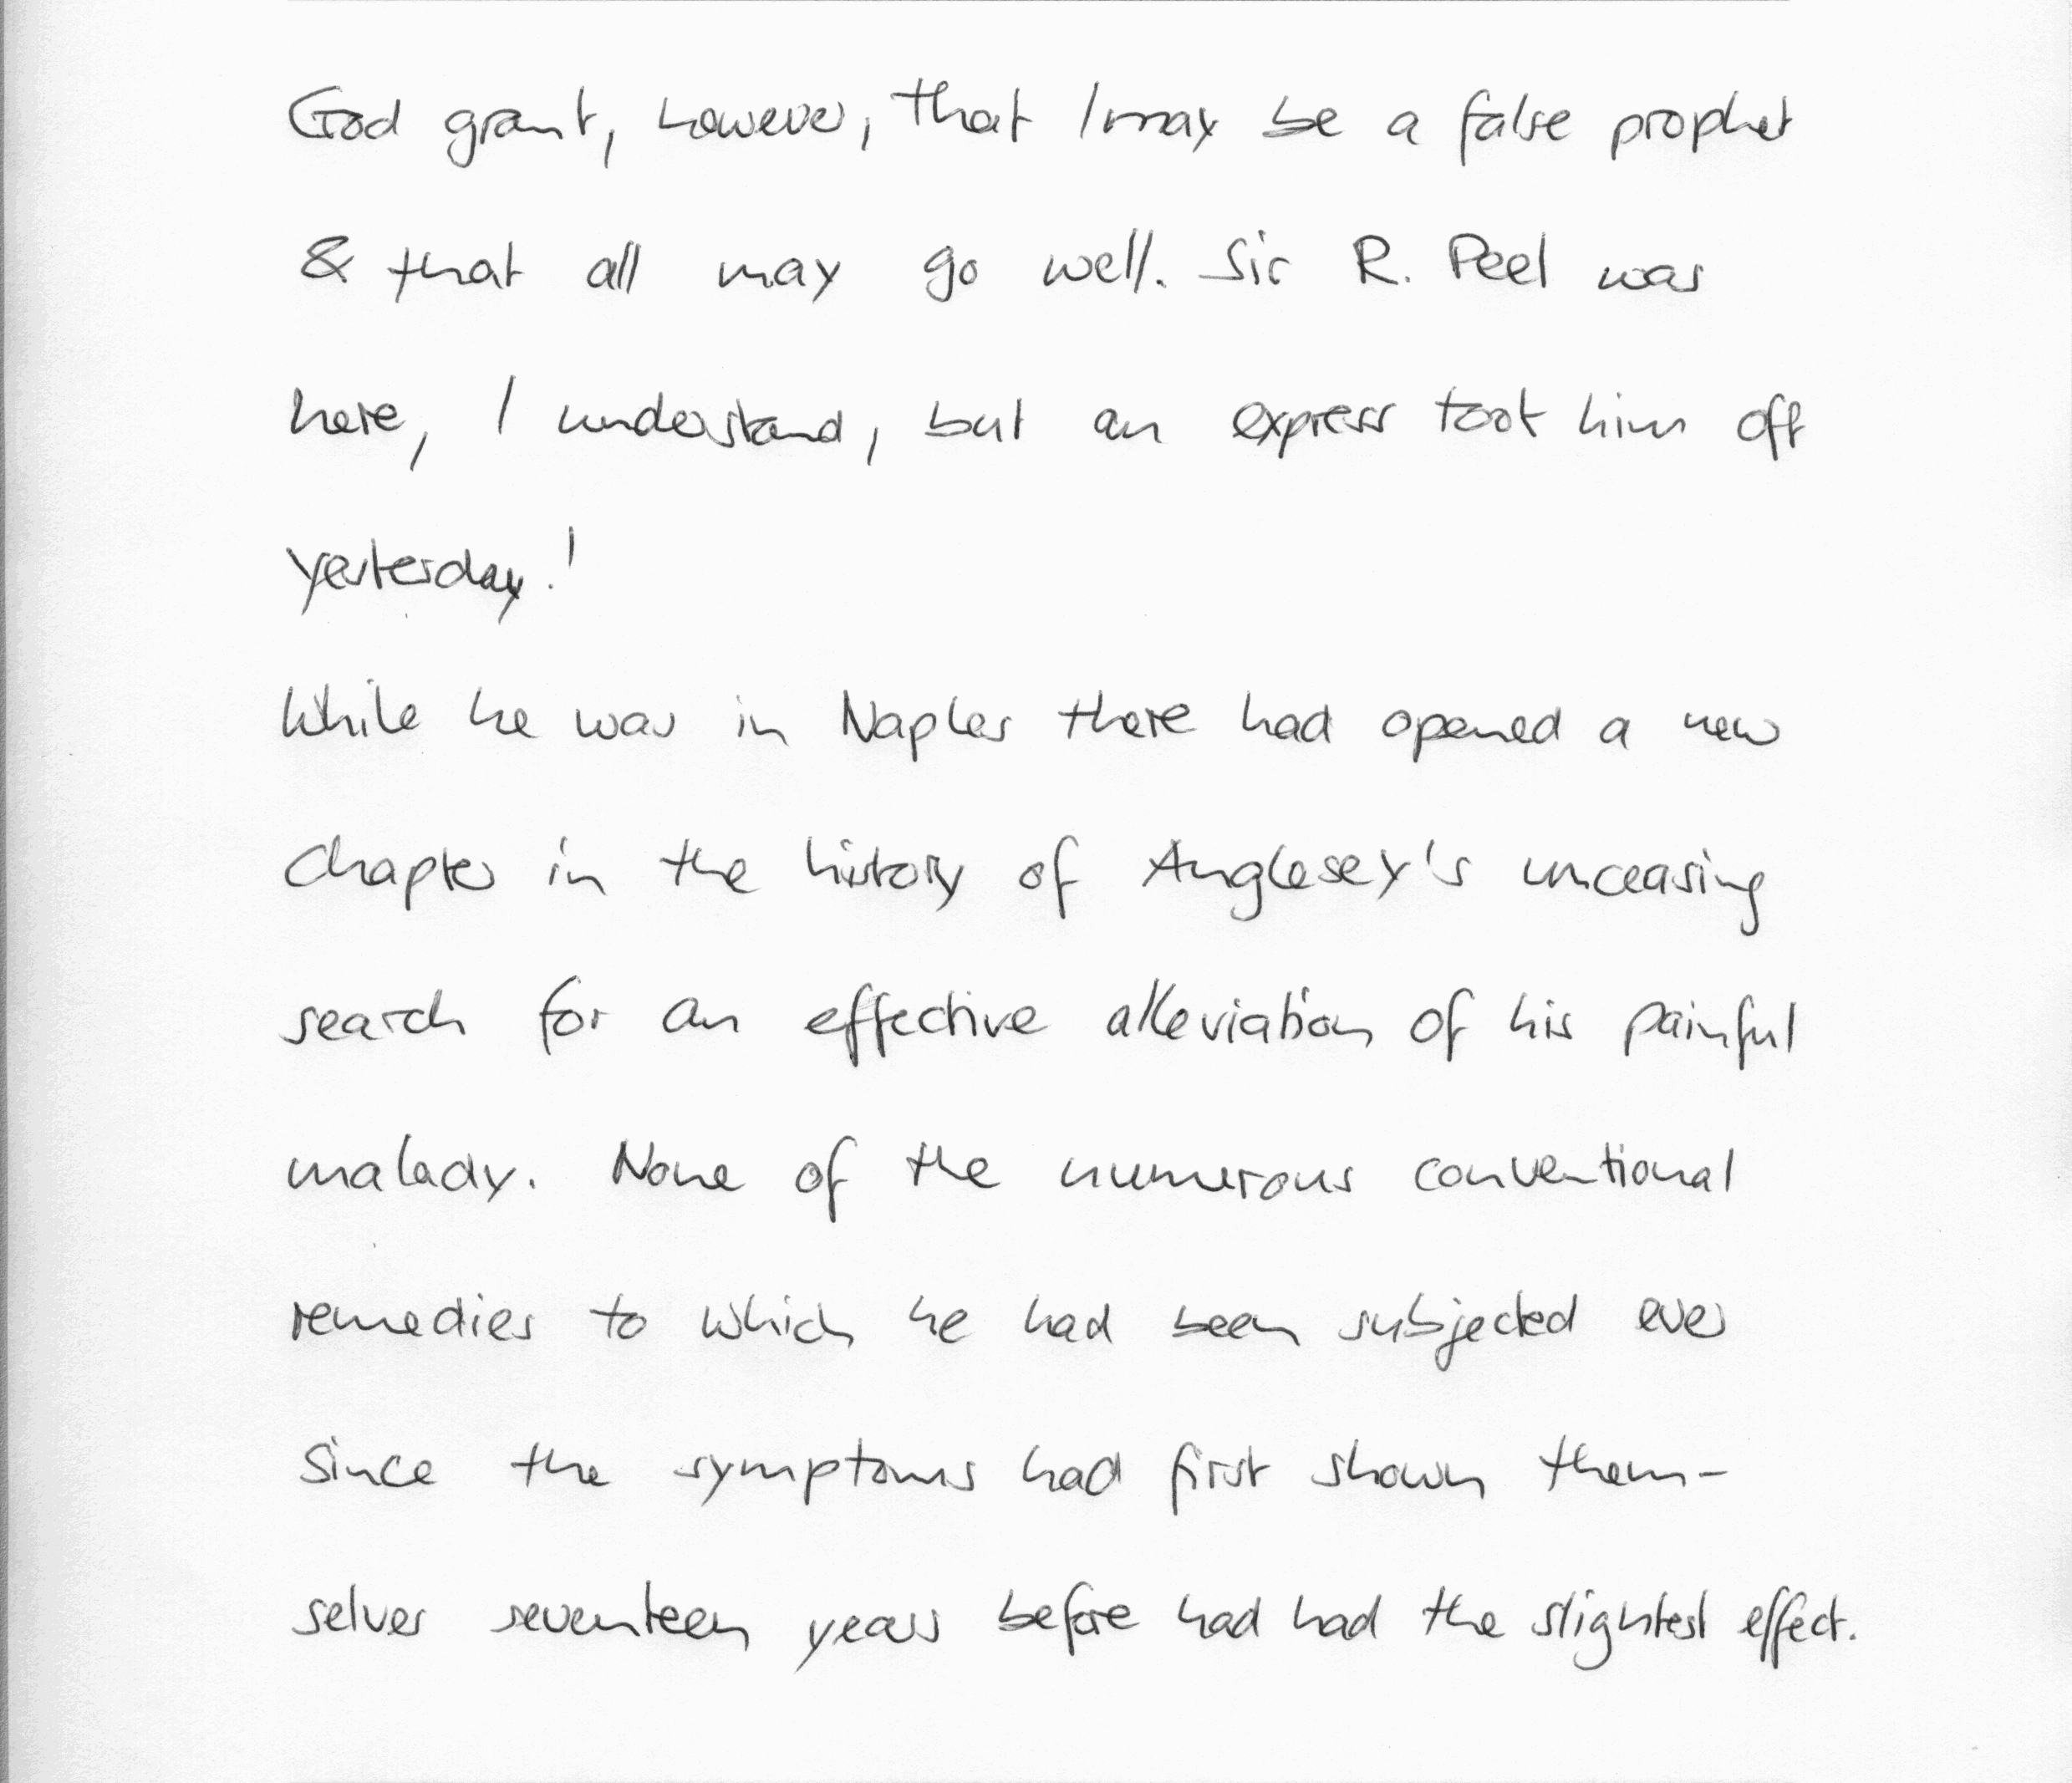 God grant, however, that I may be a false prophet
& that all may go well. Sir R. Peel was
here, I understand, but an express took him off
yesterday.'
While he was in Naples there had opened a new
Chapter in the history of Anglesey's unceasing
search for an effective alleviation of his painful
malady. None of the numerous conventional
remedies to which he had been subjected ever
Since the symptoms had first shown them-
selves seventeen years before had had the slightest effect.